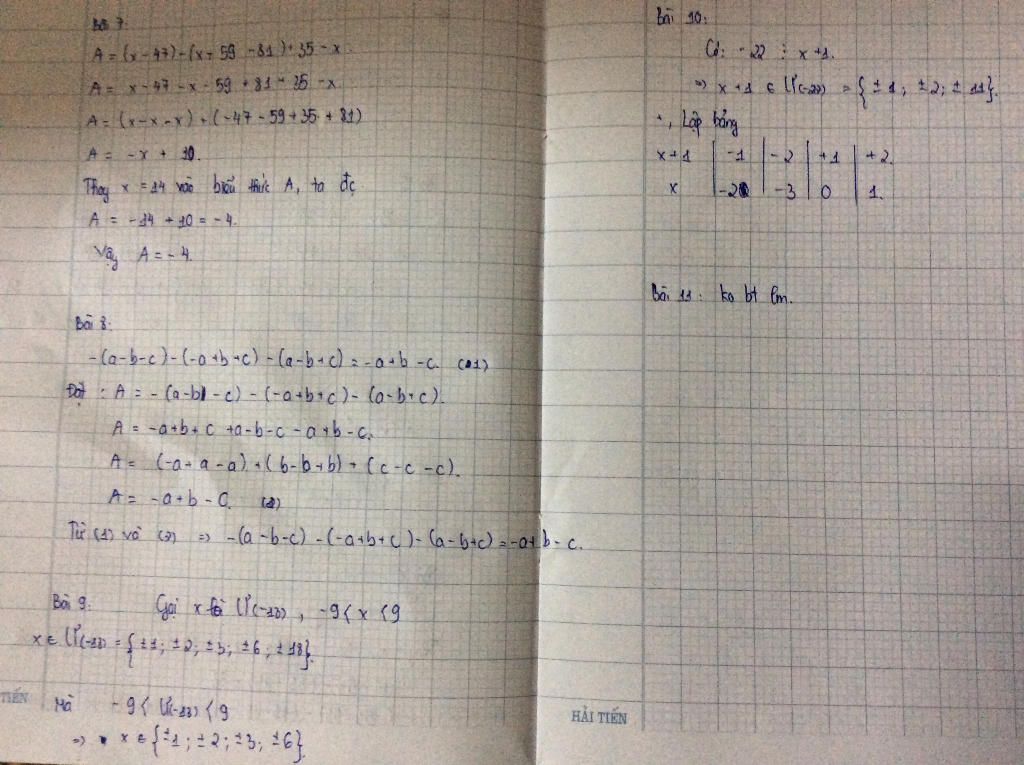 Bài 7:
A = (x - 47) - (x + 59 - 81) + 35 - x
A = x - 47 - x - 59 + 81 + 35 - x
A = (x - x - x) + (-47 - 59 + 35 + 81)
A = -x + 10.
Thay x = 14 vào biểu thức A, ta đc
A = -14 + 10 = -4.
Vậy A = -4.
Bài 8:
-(a-b-c) - (-a+b+c) - (a-b+c) = -a+b-c. (1)
Đặt: A = -(a-b-c) - (-a+b+c) - (a-b+c).
A = -a+b+c +a-b-c -a+b-c.
A = (-a+a-a) + (b-b+b) + (c-c-c).
A = -a+b-c. (2)
Từ (1) và (2) => -(a-b-c) - (-a+b+c) - (a-b+c) = -a+b-c.
Bài 9: Gọi x là Ư(-18), -9 < x < 9
x ∈ Ư(-18) = {±1; ±2; ±3; ±6; ±18}.
Mà -9 < Ư(-18) < 9
=> x ∈ {±1; ±2; ±3; ±6}.
TIẾN
HẢI TIẾN
Bài 10:
Có: -22 ⋮ x+1.
=> x+1 ∈ Ư(-22) = {±1; ±2; ±11}.
+, Lập bảng
x+1 | -1 | -2 | +1 | +2
x | -2 | -3 | 0 | 1.
Bài 11: ko bt lm.